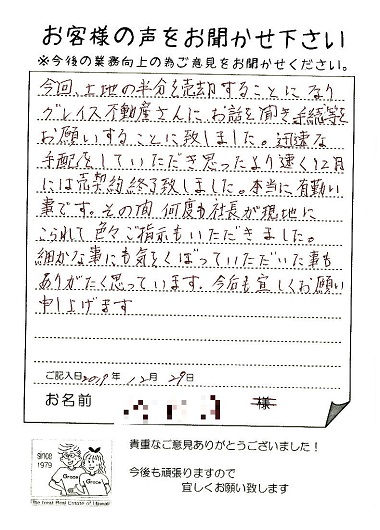 お客様の声をお聞かせ下さい
※今後の業務向上の為ご意見をお聞かせください。
今回、土地の半分を売却することになり
グレイス不動産さんに、お話を聞き手続等を
お願いすることに致しました。迅速な
手配をしていただき思ったより速く12月
には売契約終了致しました。本当に有難い
事です。その間、何度も社長が現地に
こられて色々ご指示もいただきました。
細かな事にも気をくばっていただいた事も
ありがたく思っています。今后も宜しくお願い
申し上げます
ご記入日2019年12月29日
お名前 様
since
1979
Grace
Grace
The Great Real Estate of Hawaii
貴重なご意見ありがとうございました！
今後も頑張りますので
宜しくお願い致します